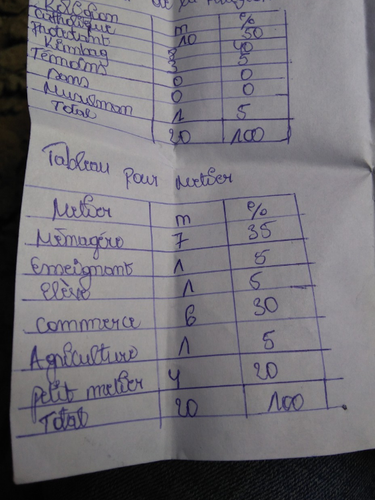 Religion n %
Catholique 10 50
Protestant 8 40
Kimbag 5
Temoins 0 0
Sans 0 0
Musulman 1 5
Total 20 100
Tableau pour metier
Metier n %
Ménagère 7 35
Enseignant 1 5
Elève 1 5
Commerce 6 30
Agriculture 1 5
petit metier 4 20
Total 20 100